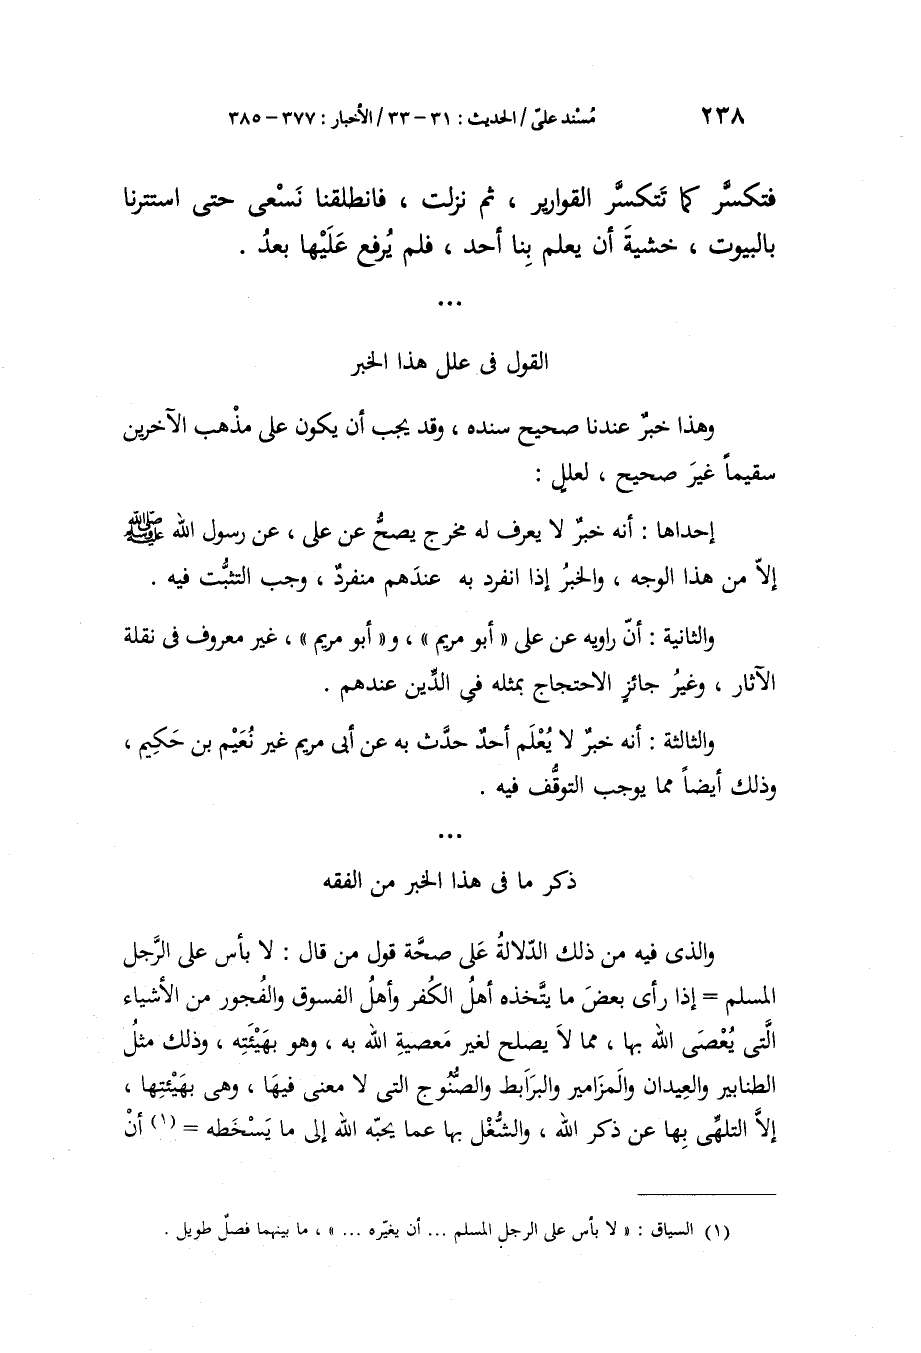 ٢٣٨ مُسْند علىّ / الحديث : ٣١ – ٣٣ / الأخبار : ٣٧٧ – ٣٨٥
فتكسَّر كما تَتكسَّر القوارير ، ثم نزلت ، فانطلقنا نَسْعى حتى استترنا
بالبيوت ، خشيةَ أن يعلم بِنا أحد ، فلم يُرفع عَلَيْها بعدُ .
...
القول فى علل هذا الخبر
وهذا خبرٌ عندنا صحيح سنده ، وقد يجب أن يكون على مذْهب الآخرين
سقيماً غيرَ صحيح ، لعللٍ :
إحداها : أنه خبرٌ لا يعرف له مخرج يصحُّ عن على ، عن رسول الله ﷺ
إلاّ من هذا الوجه ، والخبرُ إذا انفرد به عندَهم منفردٌ ، وجب التثبُّت فيه .
والثانية : أنّ راويه عن على « أبو مريم » ، و« أبو مريم » ، غير معروف فى نقلة
الآثار ، وغيرُ جائزٍ الاحتجاج بمثله فى الدِّين عندهم .
والثالثة : أنه خبرٌ لا يُعْلَم أحدٌ حدَّث به عن أبى مريم غير نُعَيْم بن حَكِيم ،
وذلك أيضاً مما يوجب التوقُّف فيه .
...
ذكر ما فى هذا الخبر من الفقه
والذى فيه من ذلك الدّلالةُ عَلى صحَّة قول من قال : لا بأس على الرَّجل
المسلم = إذا رأى بعضَ ما يتَّخذه أهلُ الكُفر وأهلُ الفسوق والفُجور من الأشياء
الَّتى يُعْصَى الله بها ، مما لاَ يصلح لغير مَعصيةِ الله به ، وهو بهَيْئَتِه ، وذلك مثلُ
الطنابير والعِيدان والَمزَامير والبرَابط والصُّنُوج التى لا معنى فيهَا ، وهى بهَيْئتِها ،
إلاَّ التلهِّى بِها عن ذكر الله ، والشُّغْل بها عما يحبّه الله إلى ما يَسْخَطه = (١) أنْ
(١) السياق : « لا بأس على الرجل المسلم ... أن يغيّره ... » ، ما بينهما فصلٌ طويل .